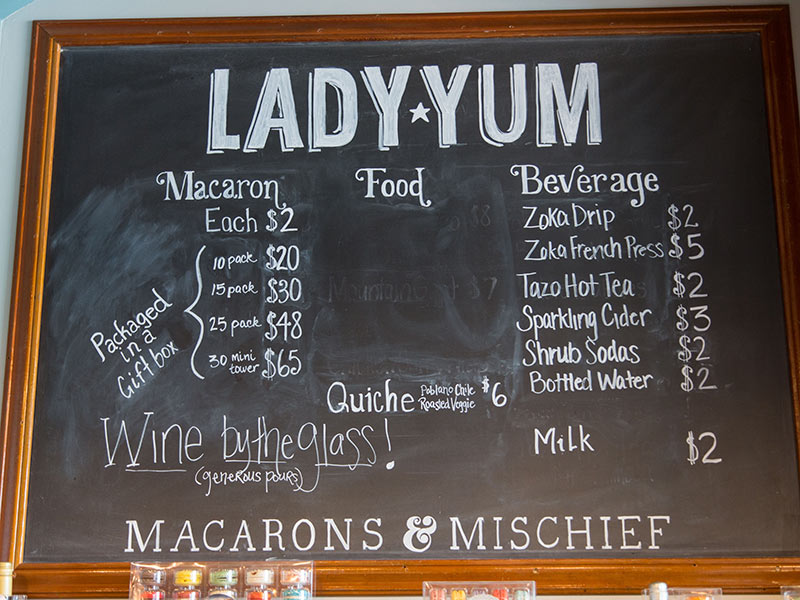 LADY★YUM
Macaron
Each $2
Packaged
in a
Gift box
10 pack $20
15 pack $30
25 pack $48
30 mini
tower $65
Food
Quiche Poblano Chile
Roasted Veggie $6
Beverage
Zoka Drip $2
Zoka French Press $5
Tazo Hot Tea $2
Sparkling Cider $3
Shrub Sodas $2
Bottled Water $2
Milk $2
Wine by the glass!
(generous pours)
MACARONS & MISCHIEF